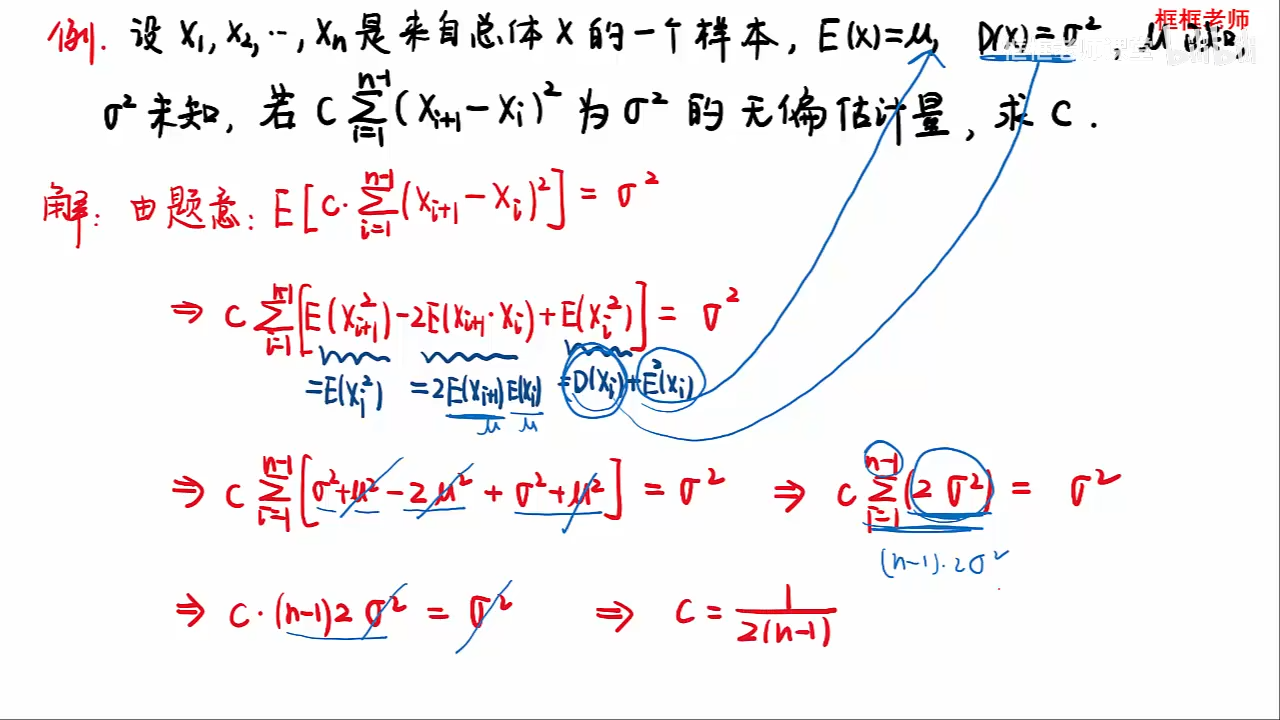 框框老师
例. 设 X₁, X₂, ⋯, Xₙ 是来自总体 X 的一个样本, E(X)=μ, D(X)=σ²,
σ²未知, 若 C ∑_{i=1}^{n-1} (X_{i+1} − X_i)² 为 σ² 的无偏估计量, 求 C.
解: 由题意: E[C·∑_{i=1}^{n-1} (X_{i+1} − X_i)²] = σ²
⇒ C ∑_{i=1}^{n-1} [E(X²_{i+1}) − 2E(X_{i+1}·X_i) + E(X_i²)] = σ²
=E(X_i²) =2E(X_{i+1})E(X_i) =D(X_i)+E²(X_i)
μ μ
⇒ C ∑_{i=1}^{n-1} [σ²+μ² − 2μ² + σ²+μ²] = σ² ⇒ C ∑_{i=1}^{n-1} (2σ²) = σ²
(n−1)·2σ²
⇒ C·(n−1)2σ² = σ² ⇒ C = 1/2(n−1)